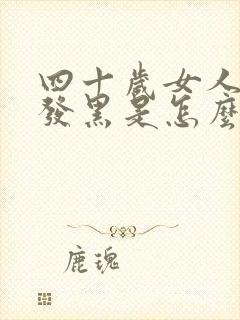 四十歲女人
發黑是怎麼
鹿瑰